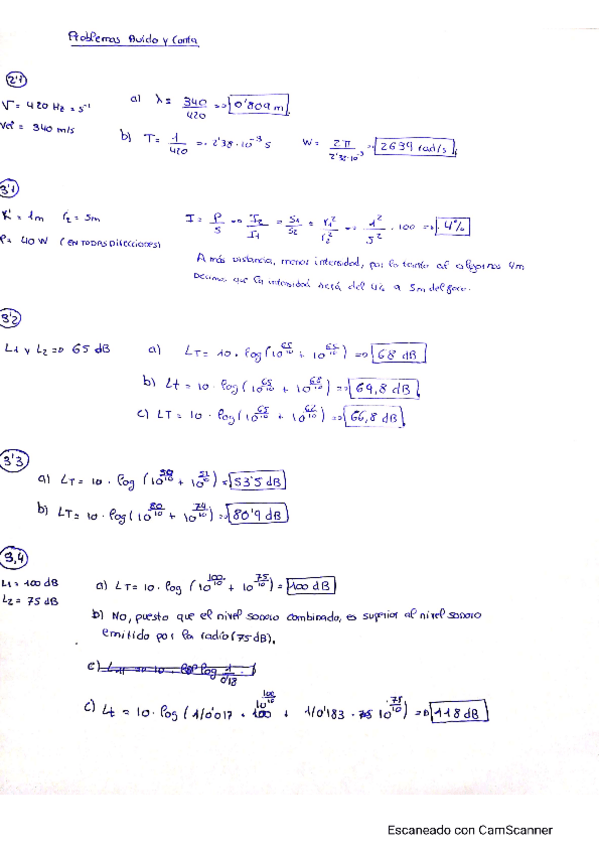 Problemas Ruido y Conta
2'1
V = 420 Hz = s⁻¹
a) λ = 340/420 => 0'809 m
Vel = 340 m/s
b) T = 1/420 = 2'38·10⁻³ s W = 2π/2'38·10⁻³ => 2639 rad/s
3'1
r₁ = 1m r₂ = 5m
I = P/S => I₂/I₁ = S₁/S₂ = r₁²/r₂² => 1²/5² · 100 => 4%
P = 40 W (EN TODAS DIRECCIONES)
A más distancia, menos intensidad, por lo tanto al alejarnos 4m
Decimos que la intensidad será del 4% a 5m del foco.
3'2
L1 y L2 => 65 dB
a) LT = 10 · log (10^65/10 + 10^65/10) => 68 dB
b) Lt = 10 · log (10^65/10 + 10^68/10) => 69,8 dB
c) LT = 10 · log (10^65/10 + 10^62/10) => 66,8 dB
3'3
a) LT = 10 · log (10^50/10 + 10^51/10) = 53'5 dB
b) LT = 10 · log (10^80/10 + 10^74/10) => 80'9 dB
3,4
L1 = 100 dB
a) LT = 10 · log (10^100/10 + 10^75/10) = 100 dB
L2 = 75 dB
b) No, puesto que el nivel sonoro combinado, es superior al nivel sonoro
emitido por la radio (75 dB).
c)
c) Lt = 10 · log (1/0'017 · 10^100/10 + 1/0'183 · 10^75/10) => 118 dB
Escaneado con CamScanner